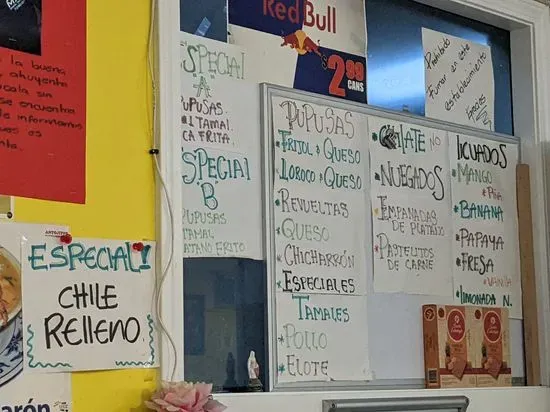 la buena
ahuyenta
sin
se encuentra
informarnos
es
RedBull
2 99
CANS
Prohibido
Fumar en este
establecimiento
Gracias
Special
A
PUPUSAS
TAMAL
CA FRITA
SPECIAL
B
PUPUSAS
TAMAL
ATANO FRITO
PUPUSAS
FRIJOL & QUESO
LOROCO & QUESO
REVUELTAS
QUESO
CHICHARRÓN
ESPECIALES
TAMALES
POLLO
ELOTE
LATE NO
NUEGADOS
EMPANADAS
DE PLATANO
PASTELITOS
DE CARNE
LICUADOS
MANGO
PIÑA
BANANA
PAPAYA
FRESA
VAINILLA
LIMONADA N.
ESPECIAL!
CHILE
RELLENO
ANTOJITOS
arón